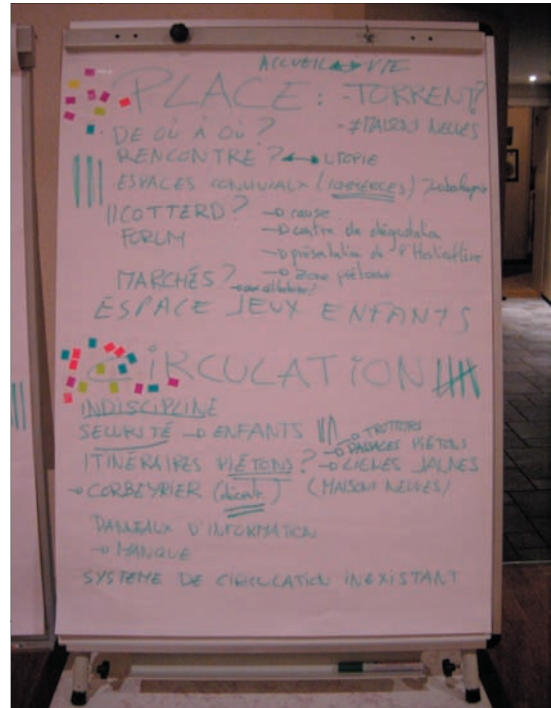 ACCUEIL ↔ VIE
PLACE : - TORRENT?
- ≠ MAISON NEUVES
DE OÙ À OÙ ?
RENCONTRE ? ↔ UTOPIE
ESPACES CONVIVIAUX (COMMERCES)
COTTERD ? → cause
FORUM → centre de dégustation
→ présentation de
→ Zone piétonne
MARCHÉS ?
ESPACE JEUX ENFANTS
CIRCULATION
INDISCIPLINE
SECURITÉ → ENFANTS → TROTTOIRS
→ PASSAGES PIÉTONS
ITINÉRAIRES PIÉTONS ? → LIGNES JAUNES
→ CORBEYRIER (MAISONS NEUVES)
PANNEAUX D'INFORMATION
→ MANQUE
SYSTEME DE CIRCULATION INEXISTANT